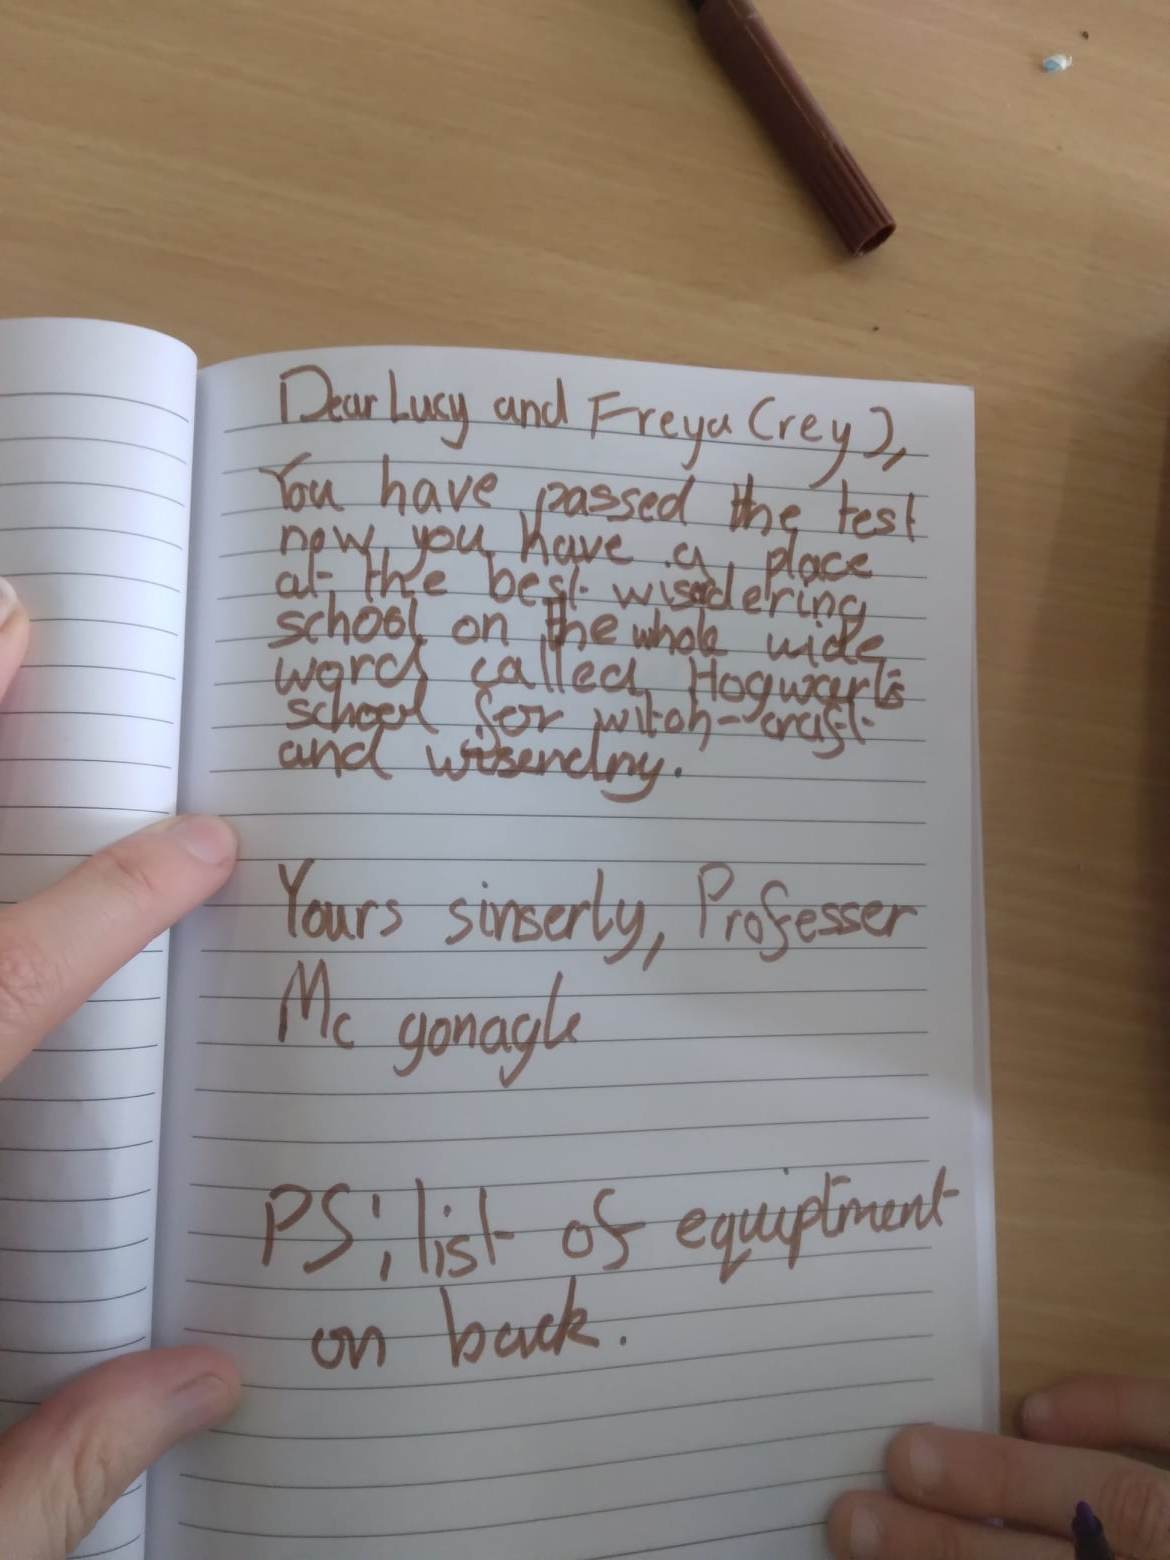 Dear Lucy and Freya (rey),
You have passed the test
now you have a place
at the best wisadering
school on the whole wide
word called Hogwarts
school for witch-craft
and wisendry.
Yours sinserly, Professer
Mc gonagle
PS; list of equiptment
on back.